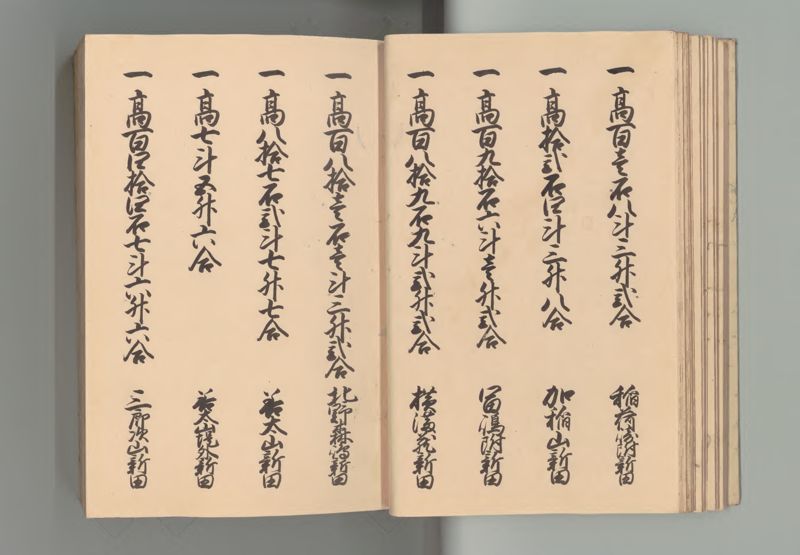 一 高百壱石八斗三升弐合 稲荷崎附新田
一 高拾弐石四斗三升八合 加稲山新田
一 高百九拾石六斗壱升弐合 冨嶋附新田
一 高百八拾九石九斗弐升弐合 横満蔵新田
一 高百八拾壱石壱斗三升弐合 北野森嶋新田
一 高八拾七石弐斗七升七合 善太山新田
一 高七斗五升六合 善太堤外新田
一 高百四拾四石七斗六升六合 三郎次山新田